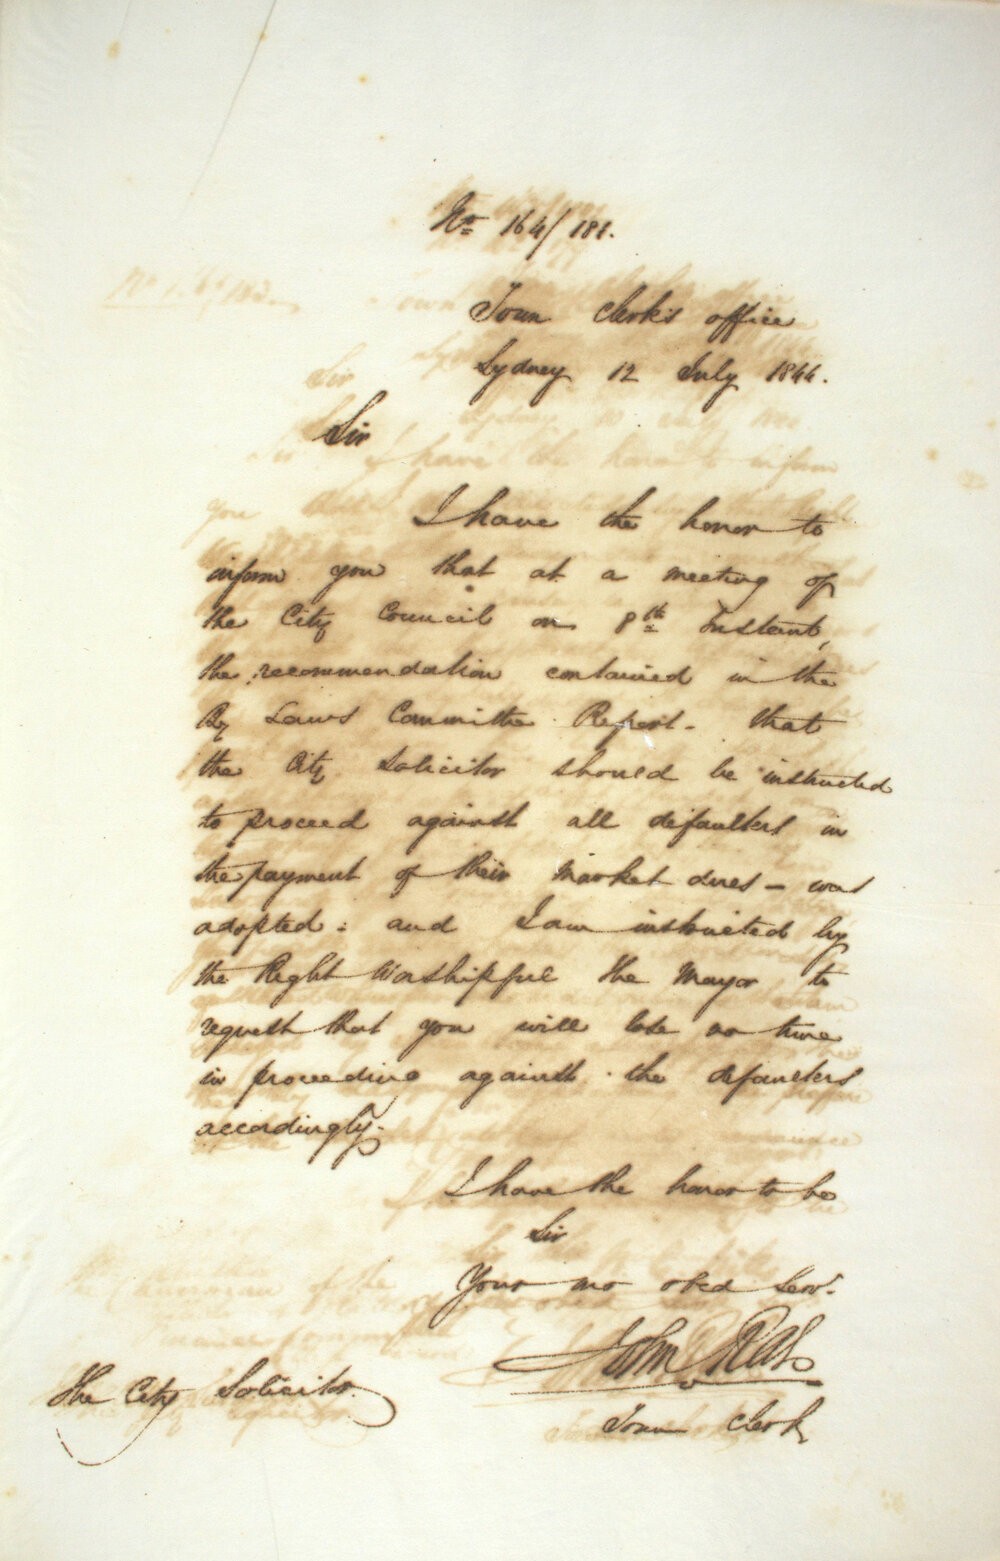 No 164/181.
Town Clerk's office
Sydney 12 July 1844.
Sir
I have the honor to
inform you that at a meeting of
the City Council on 8th Instant,
the recommendation contained in the
By Laws Committee Report - that
the City Solicitor should be instructed
to proceed against all defaulters in
the payment of their market dues - was
adopted: and I am instructed by
the Right Worshipful the Mayor to
request that you will lose no time
in proceeding against the defaulters
accordingly.
I have the honor to be
Sir
Your mo obed Servt.
John Rae
Town Clerk
The City Solicitor